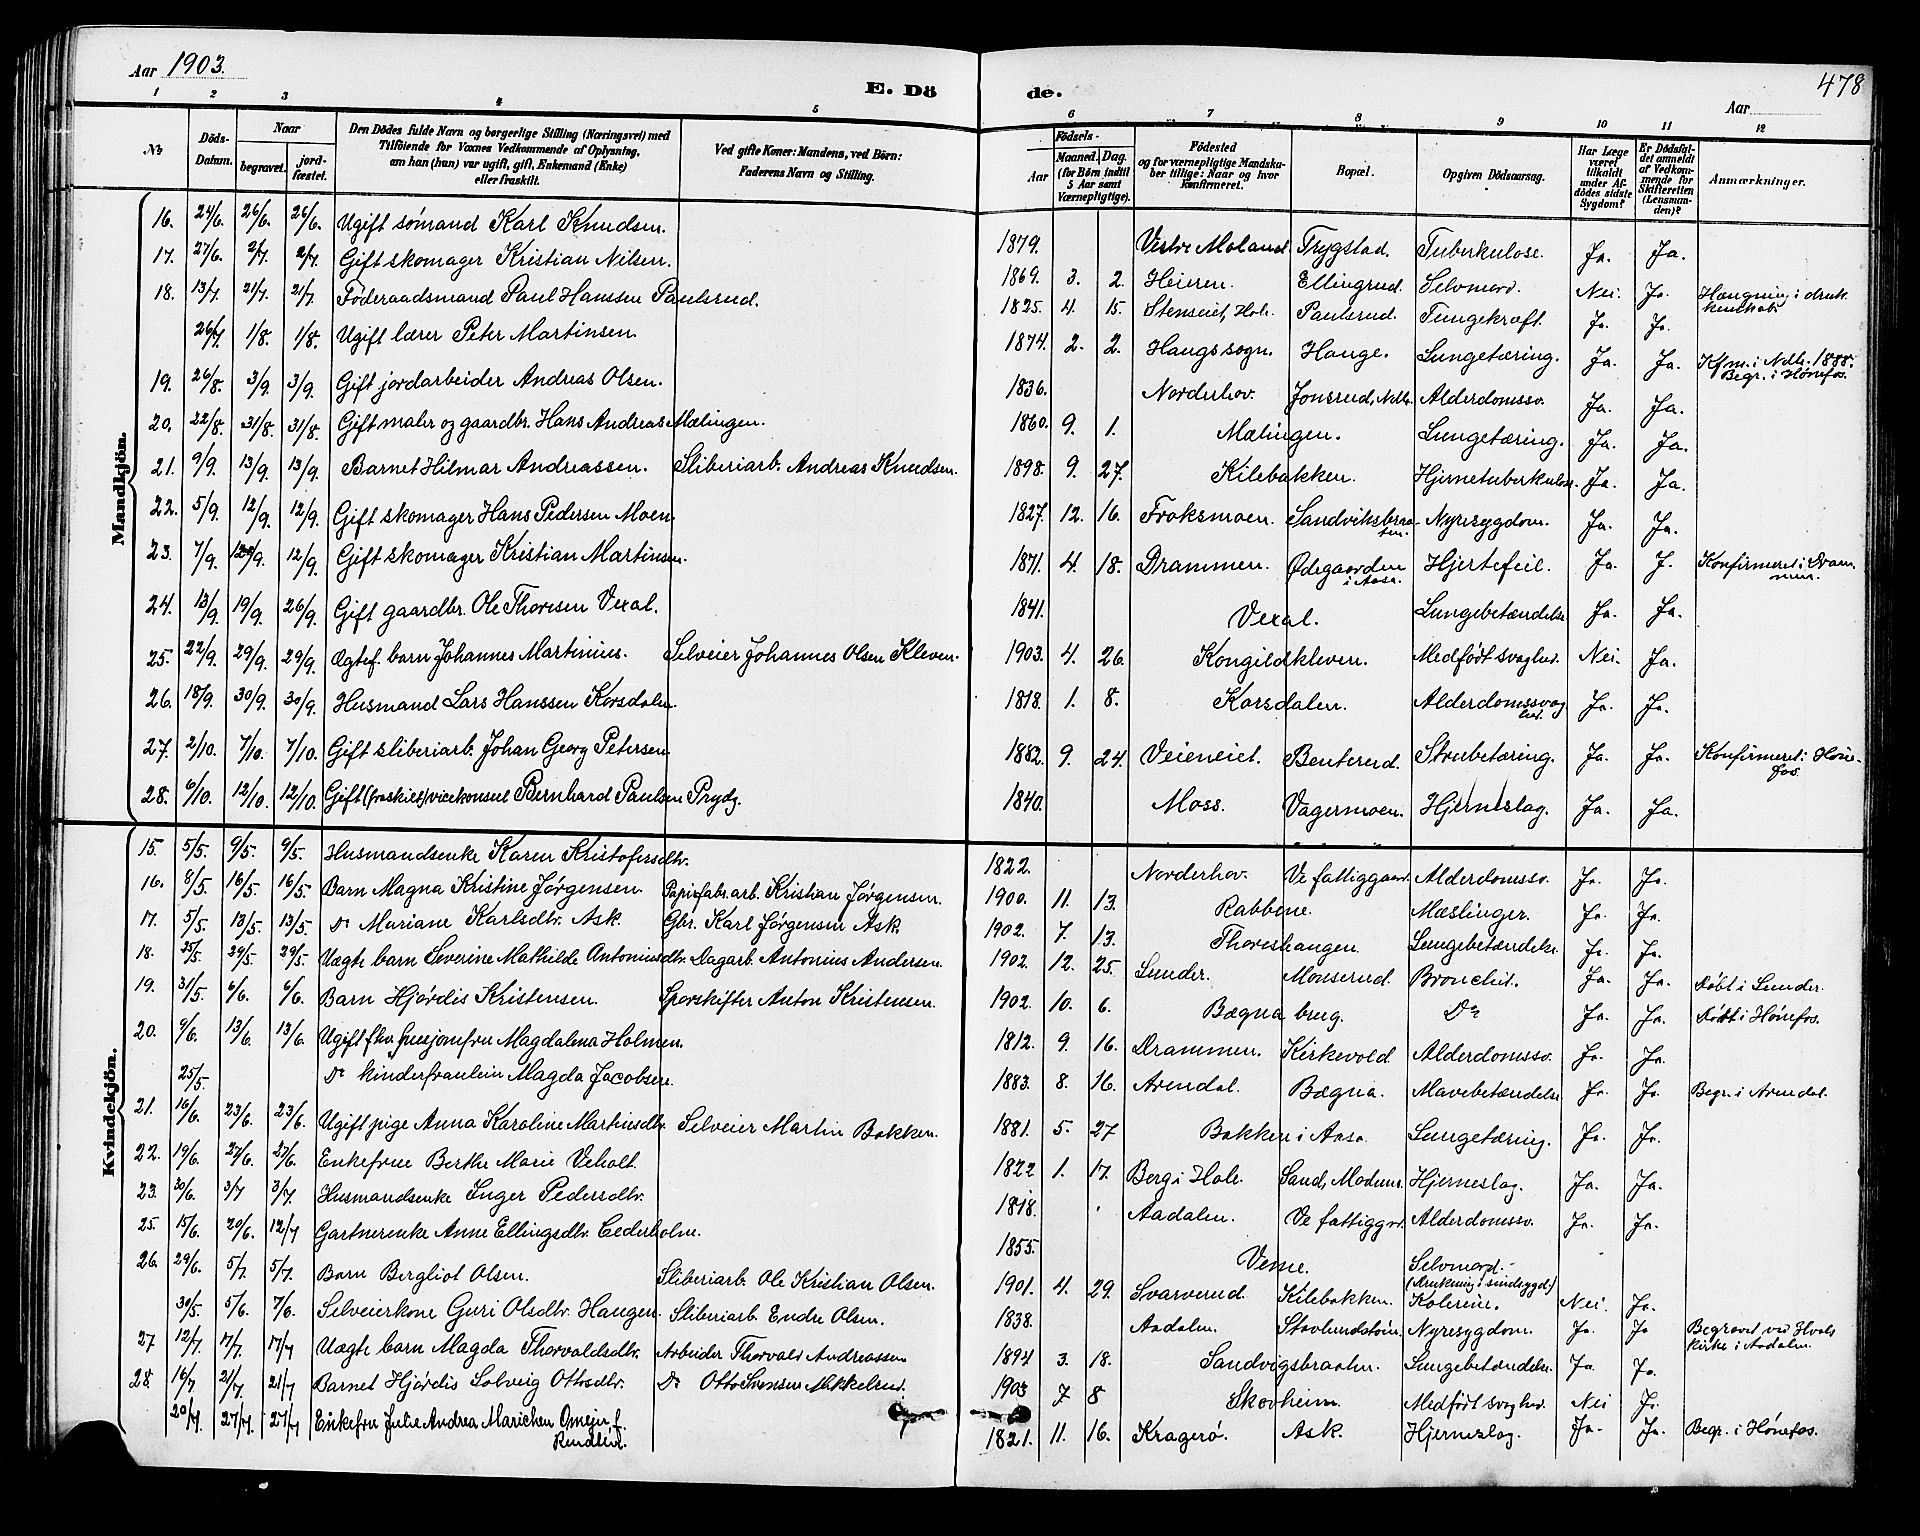 Aar 1903.
E. Dö
de.
Aar
478
1 2 3 4 5
6 7 8 9 10 11 12
No
Döds-Datum.
Naar
begravet.
jord-fæstet.
Den Dödes fulde Navn og borgerlige Stilling (Næringsvei) med
Tilföiende for Voxnes Vedkommende af Oplysning,
om han (hun) var ugift, gift, Enkemand (Enke)
eller fraskilt.
Ved gifte Koner: Mandens, ved Börn:
Faderens Navn og Stilling.
Födsels-
Aar
Maaned.
Dag.
(for Börn indtil
5 Aar samt
Værnepligtige).
Födested
og for værnepligtige Mandska-
ber tillige: Naar og hvor
konfirmeret.
Bopæl.
Opgiven Dödsaarsag.
Har Læge
været
tilkaldt
under Af-
dödes sidste
Sygdom?
Er Dödsfal-
det anmeldt
af Vedkom-
mende for
Skifteretten
(Lensman-
den)?
Anmærkninger.
Mandkjön.
16. 24/6. 26/6. 26/6. Ugift sömand Karl Knudsen. 1879. Vestre Moland Trygstad. Tuberkulose. Ja. Ja.
17. 27/6. 2/7. 2/7. Gift skomager Kristian Nilsen. 1869. 3. 2. Heieren. Ellingrud. Selvmord. Nei. Ja. Hængning i druk
kenskab.
18. 13/7. 21/7. 21/7. Föderaadsmand Paul Hanssen Paulsrud. 1825. 4. 15. Stenseiet, Hole. Paulsrud. Tungekræft. Ja. Ja.
26/7. 1/8. 1/8. Ugift lærer Peter Martinsen 1874. 2. 2. Haugs sogn. Hauge. Lungetæring. Ja. Ja. Kfm. i Ndh. 1888.
Begr. i Hønefos.
19. 26/8. 3/9. 3/9. Gift jordarbeider Andreas Olsen. 1836. Norderhov. Jonsrud, Ndh. Alderdomssv. Ja. Ja.
20. 22/8. 31/8. 31/8. Gift maler og gaardbr. Hans Andreas Mælingen. 1860. 9. 1. Mælingen. Lungetæring. Ja. Ja.
21. 9/9. 13/9. 13/9. Barnet Hilmar Andreassen. Sliberiarb. Andreas Knudsen. 1898. 9. 27. Kilebakken. Hjernetuberkulose. Ja. Ja.
22. 5/9. 12/9. 12/9. Gift skomager Hans Pedersen Moen. 1827. 12. 16. Froksmoen. Sandviksbraa-
ten. Nyresygdom. Ja. Ja.
23. 7/9. 12/9. 12/9. Gift skomager Kristian Martinsen. 1871. 4. 18. Drammen. Ødegaarden
i Aasa. Hjertefeil. Ja. J. Konfirmeret i Dram-
men.
24. 13/9. 19/9. 26/9. Gift gaardbr. Ole Thoresen Vexal. 1841. Vexal. Lungebetændelse Ja. Ja.
25. 22/9. 29/9. 29/9. Ægtef. barn Johannes Martinius. Selveier Johannes Olsen Kleven. 1903. 4. 26. Kongildkleven. Medfödt svaghed. Nei. Ja.
26. 18/9. 30/9. 30/9. Husmand Lars Hanssen Korsdalen. 1818. 1. 8. Korsdalen. Alderdomssvag
hed. Ja. Ja.
27. 2/10. 7/10. 7/10. Gift sliberiarb. Johan Georg Petersen. 1882. 9. 24. Veieneiet. Benterud. Strubetæring. Ja. Ja. Konfirmeret i Høne-
fos.
28. 6/10. 12/10. 12/10. Gift (fraskilt) vicekonsul Bernhard Paulsen Prydz. 1840. Moss. Vagermoen. Hjerneslag. Ja. Ja.
Kvindekjön.
15. 5/5. 9/5. 9/5. Husmandsenke Karen Kristofersdtr. 1822. Norderhov. Ve fattiggaard. Alderdomssv. Ja. Ja.
16. 8/5. 16/5. 16/5. Barn Magna Kristine Jørgensen Papirfabr.arb. Kristian Jørgensen. 1900. 11. 13. Rabbene. Mæslinger. Ja. Ja.
17. 5/5. 13/5. 13/5. Do Mariane Karlsdtr. Ask. Gbr. Karl Jørgensen Ask. 1902. 7. 13. Thorishaugen. Lungebetændelse Ja. Ja.
18. 25/5. 29/5. 29/5. Uægte barn Severine Mathilde Antoniusdtr. Dagarb. Antonius Andersen. 1902. 12. 25. Lunder. Monserud. Bronchit. Ja. Ja. Døbt i Lunder.
19. 31/5. 6/6. 6/6. Barn Hjördis Kristensen. Sporskifter Anton Kristensen. 1902. 10. 6. Bægna brug. Do Ja. Ja. Døbt i Hønefos.
20. 9/6. 13/6. 13/6. Ugift fhv. husjomfru Magdalena Holmen. 1812. 9. 16. Drammen. Kirkevold. Alderdomssv. Ja. Ja.
25/5. Do kinderfraulein Magda Jacobsen. 1883. 8. 16. Arendal. Bægna. Mavebetændelse Ja. Ja. Begr. i Arendal.
21. 16/6. 23/6. 23/6. Ugift pige Anna Karoline Martinsdtr. Selveier Martin Bakken. 1881. 5. 27 Bakken i Aasa. Lungetæring. Ja. Ja.
22. 19/6. 27/6. 27/6. Enkefrue Berthe Marie Veholt. 1822 1. 17. Berg i Hole. Sand, Modum. Hjerneslag. Ja. Ja.
23. 30/6. 3/7 3/7. Husmandsenke Inger Pedersdtr. 1818. Aadalen. Ve fattiggrd. Alderdomssv. Ja. Ja.
25. 15/6. 20/6. 12/7 Gartnerenke Anne Ellingsdtr. Cederholm. 1855. Veme. Selvmord.
(Drukning i sindsygd.)
26. 29/6. 5/7. 5/7. Barn Bergliot Olsen. Sliberiarb. Ole Kristian Olsen. 1901. 4. 29. Svarverud. Kilebakken. Kolerine. Nei. Ja.
30/5. 5/6. 7/6. Selveierkone Guri Olsdtr. Haugen. Sliberiarb. Endre Olsen. 1838. Aadalen. Nyresygdom. Ja. Ja Begravet ved Hvals
kirke i Aadalen.
27 12/7. 17/7. 17/7 Uægte barn Magda Thorvaldsdtr. Arbeider Thorvald Andreassen 1894 3. 18. Sandvigsbraaten. Lungebetændelse. Ja. Ja.
28. 16/7 21/7. 21/7 Barnet Hjördis Solveig Ottosdtr. Do Otto Svensen Mikkelrud. 1903 7 8 Skovheim. Medfödt svaghed. Nei Ja.
20/7. 27/7. 27/7 Enkefru Julie Andrea Marichen Omejer f.
1821. 11. 16. Kragerö. Ask. Hjerneslag. Ja. Ja. Begr. i Hønefos.